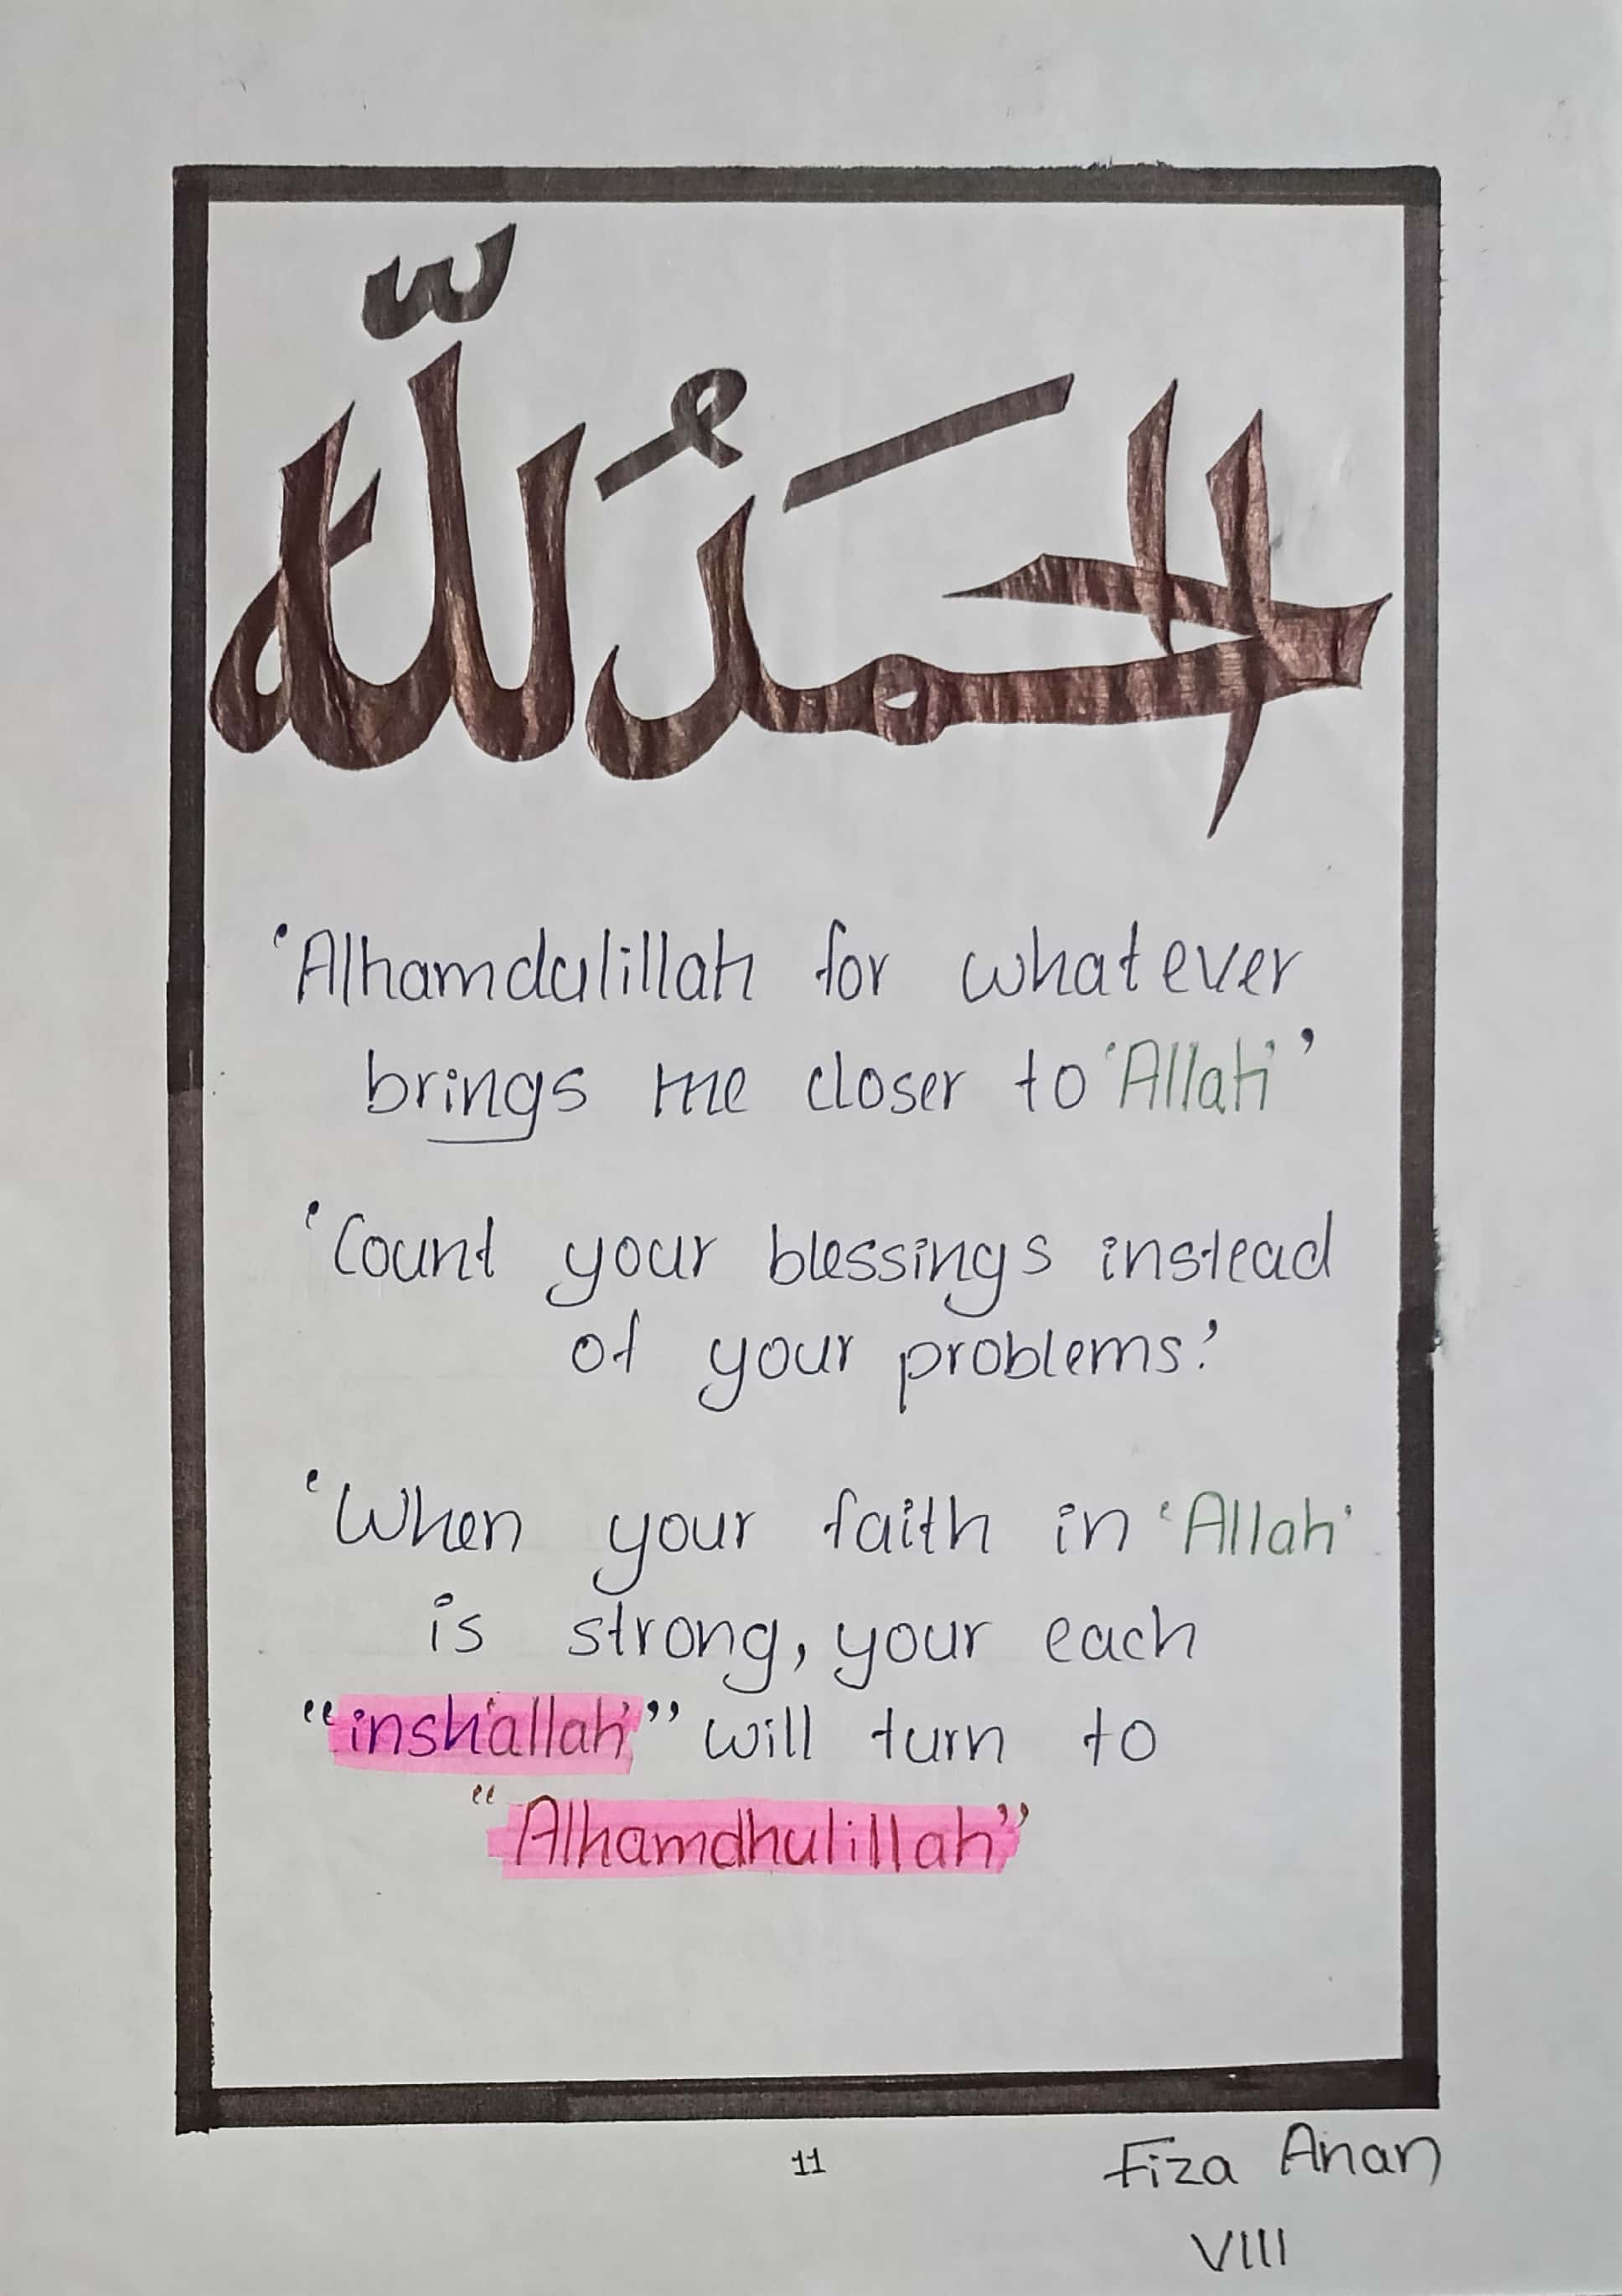 الحَمْدُ لِلّه
'Alhamdulillah for whatever
brings me closer to 'Allah' '
'Count your blessings instead
of your problems.'
'When your faith in 'Allah'
is strong, your each
"insh'allah'" will turn to
"Alhamdhulillah"
11
Fiza Anan
VIII